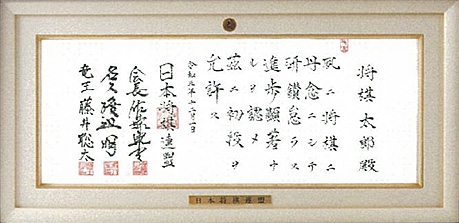 将棋太郎殿
夙ニ将棋ニ
丹念ニシテ
研鑽怠ラス
進歩顕著ナ
ルヲ認メ
茲ニ初段ヲ
允許ス
日本将棋連盟
会長 佐藤康光
名人 渡辺明
竜王 藤井聡太
日本将棋連盟